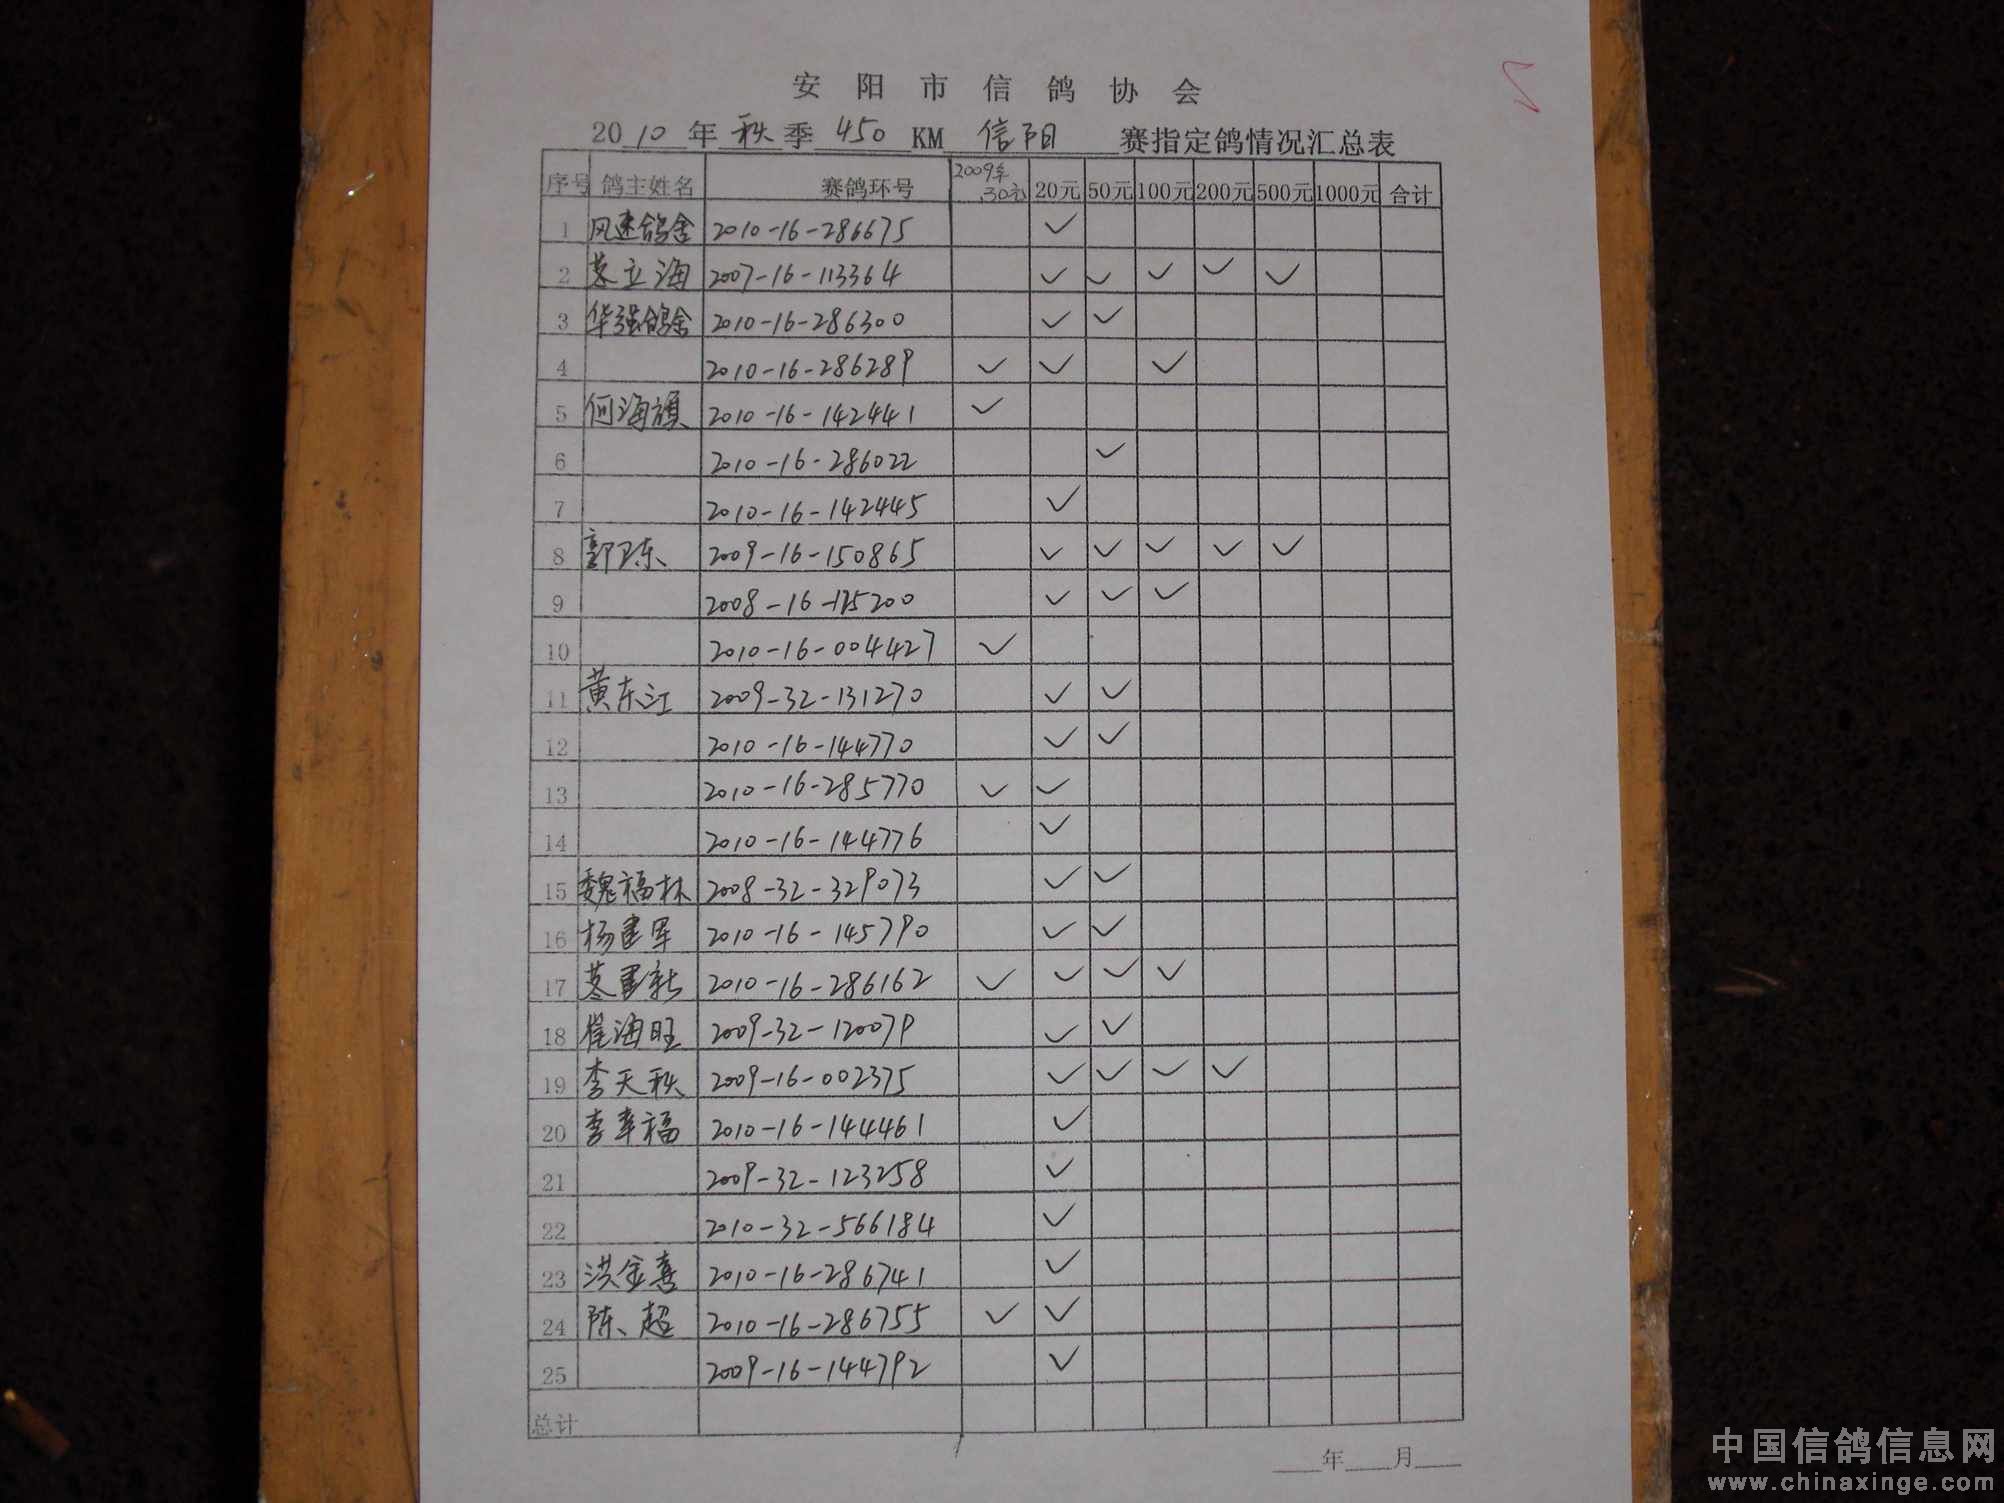 安阳市信鸽协会
2010年秋季450KM信阳赛指定鸽情况汇总表
序号 鸽主姓名 赛鸽环号 2009年30元 20元 50元 100元 200元 500元 1000元 合计
1 风速鸽舍 2010-16-286675 ✓
2 苳立海 2007-16-113364 ✓ ✓ ✓ ✓ ✓
3 华强鸽舍 2010-16-286300 ✓ ✓
4 2010-16-286289 ✓ ✓ ✓
5 何海旗 2010-16-142441 ✓
6 2010-16-286022 ✓
7 2010-16-142445 ✓
8 郭卫东 2009-16-150865 ✓ ✓ ✓ ✓ ✓
9 2008-16- ✓ ✓ ✓
10 2010-16-004427 ✓
11 黄东江 2009-32-131270 ✓ ✓
12 2010-16-144770 ✓ ✓
13 2010-16-285770 ✓ ✓
14 2010-16-144776 ✓
15 魏福林 2008-32-329073 ✓ ✓
16 杨建军 2010-16-145790 ✓ ✓
17 建新 2010-16-286162 ✓ ✓ ✓ ✓
18 崔海旺 2009-32-120079 ✓ ✓
19 李天秋 2009-16-002375 ✓ ✓ ✓ ✓
20 李幸福 2010-16-144461 ✓
21 2009-32-123258 ✓
22 2010-32-566184 ✓
23 洪金喜 2010-16-286741 ✓
24 陈超 2010-16-286755 ✓ ✓
25 2009-16-144792 ✓
总计
年 月
中国信鸽信息网
www.chinaxinge.com